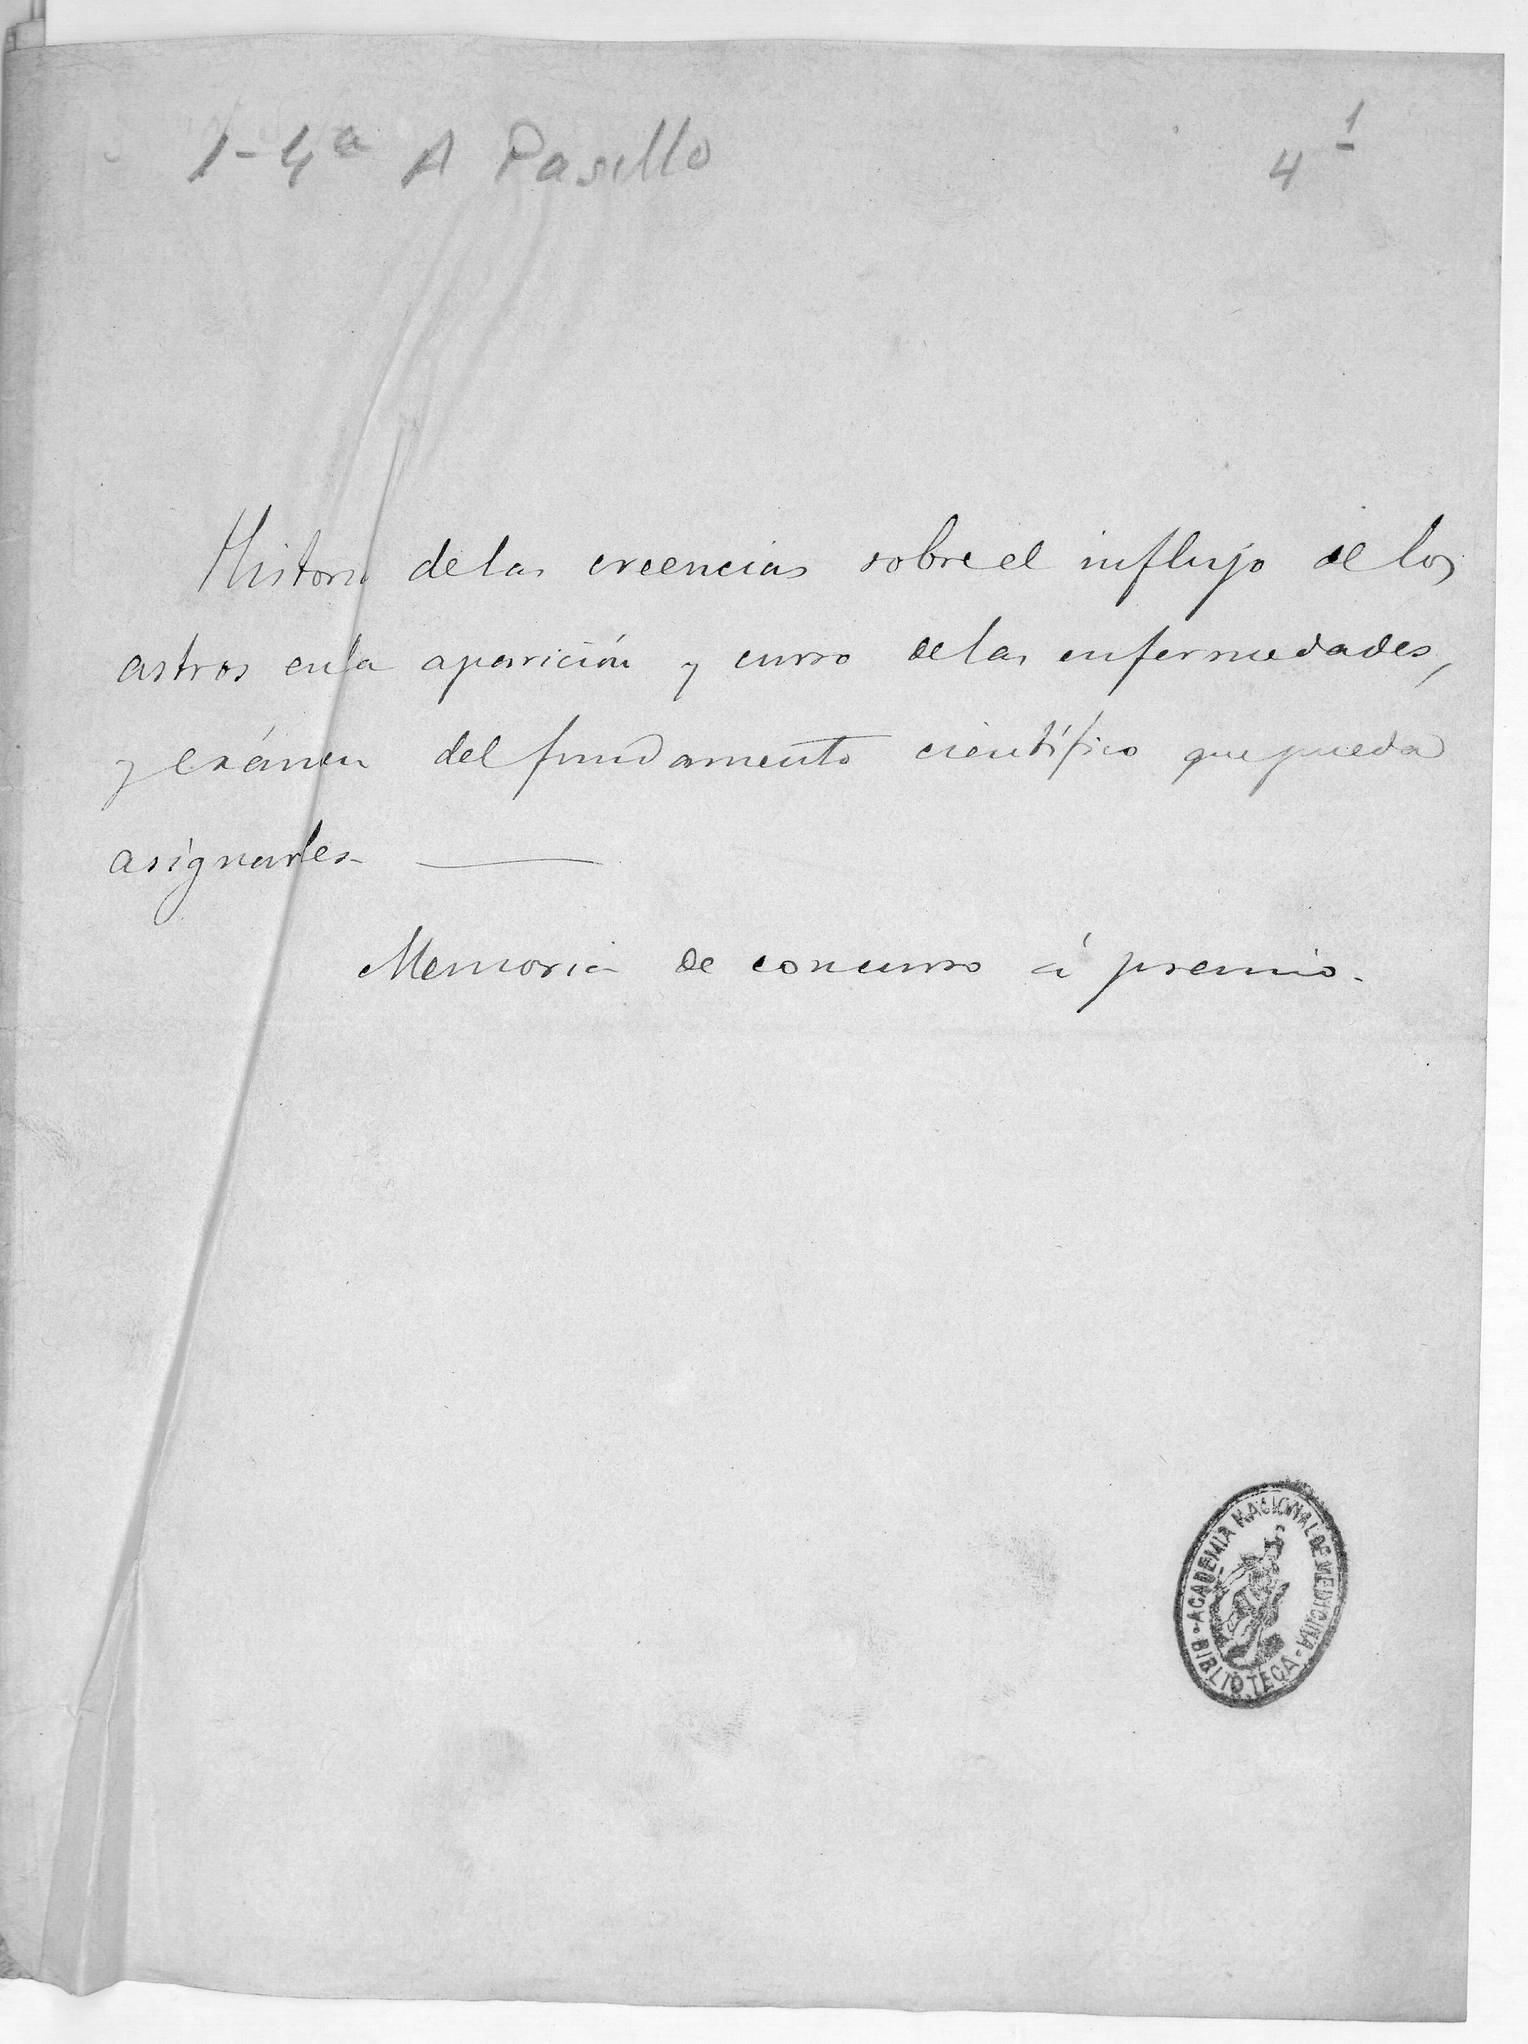 1-4ª A Pasillo
4 1
Historia de las creencias sobre el influjo de los
astros en la aparición y curso de las enfermedades,
y exámen del fundamento científico que pueda
asignarles
Memoria de concurso á premio.
ACADEMIA NACIONAL DE MEDICINA
BIBLIOTECA